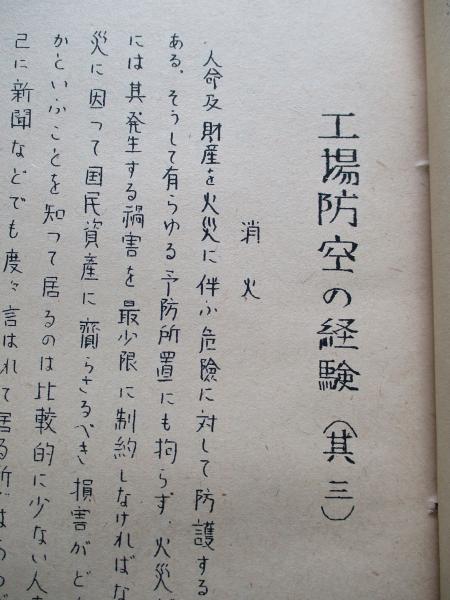 工場防空の経験（其三）
消火
人命及財産を火災に伴ふ危険に対して防護する
ある。そうして有らゆる予防所置にも拘らず、火災
には其発生する禍害を最少限に制約しなければな
災に因って国民資産に齎らさるべき損害がど
かといふことを知って居るのは比較的に少ない人
己に新聞などでも度々言はれて居る所ではあ